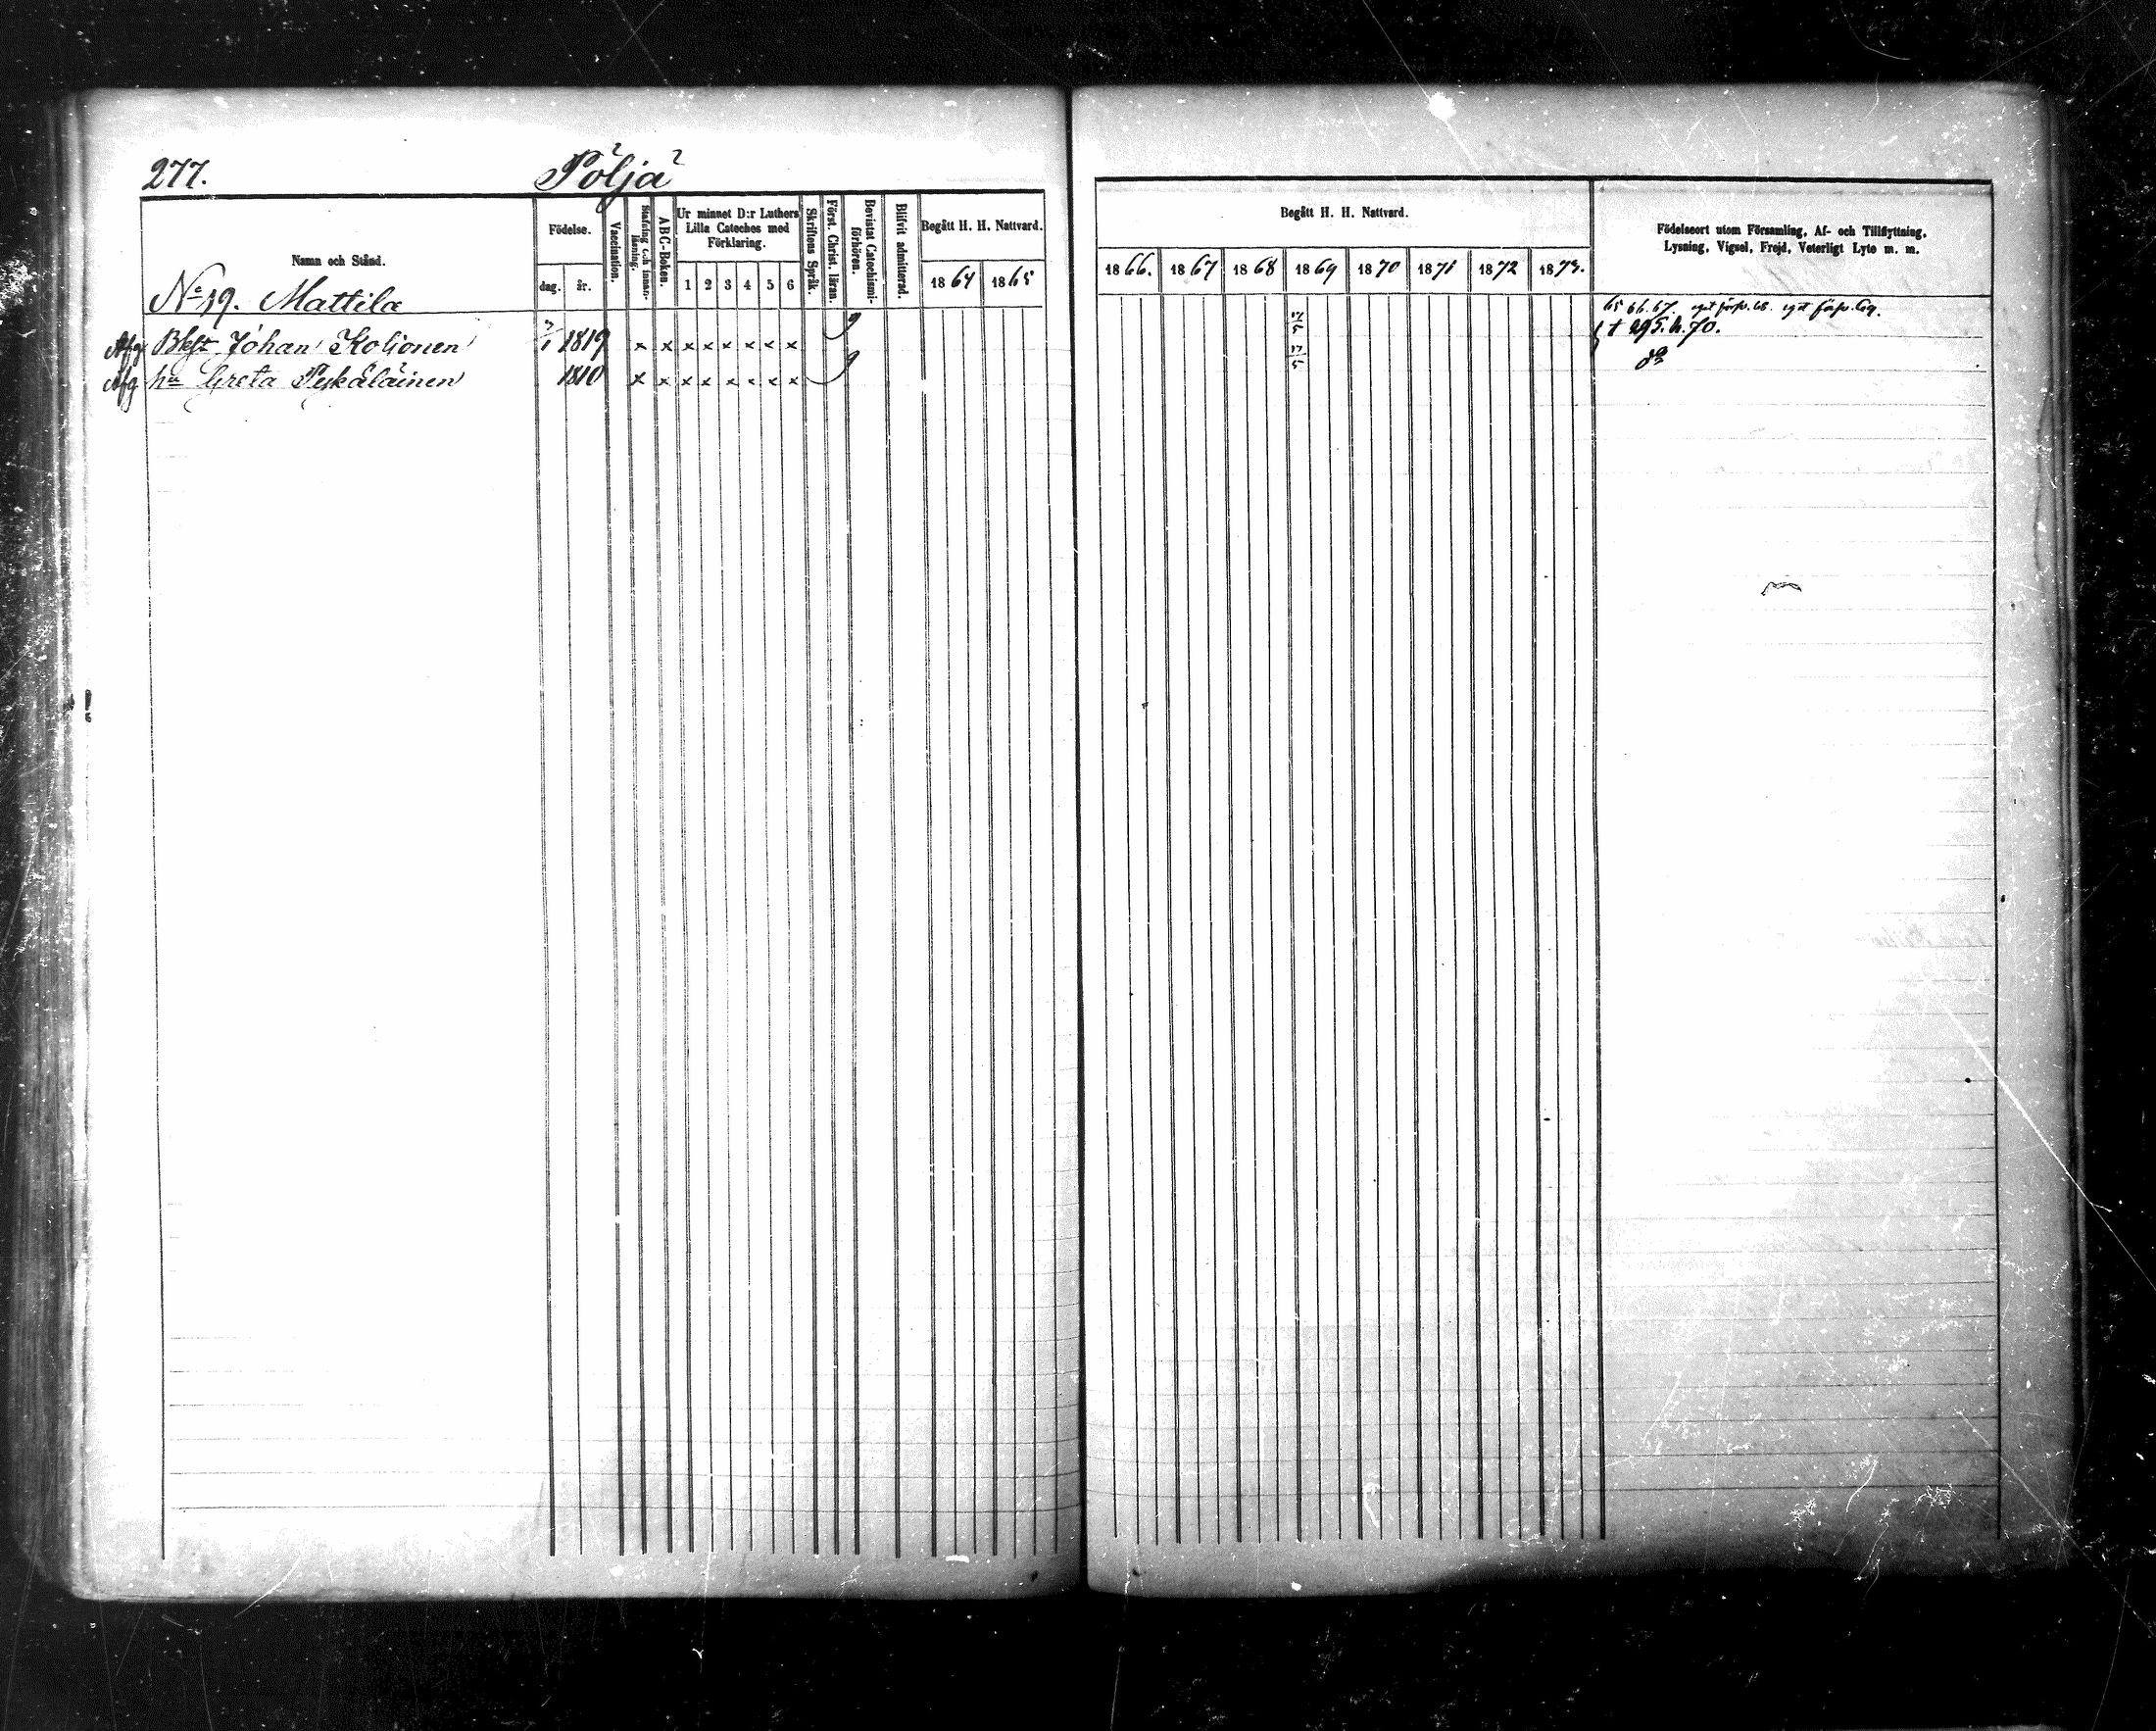 277.
Pöljä
Namn och Stånd.
Födelse.
dag.
år.
Vaccination.
Stafning och innan-
läsning.
ABC-Boken.
Ur minnet D:r Luthers
Lilla Cateches med
Förklaring.
1 2 3 4 5 6
Skriftens Språk.
Först. Christ. läran.
Bevistat Catechismi-
förhören.
Blifvit admitterad.
Begått H. H. Nattvard.
1864 1865
No 19. Mattila
Afg Bkst Johan Kolionen 1819 x x x x x x x x
Afg hu Greta Pykäläinen 1810 x x x x x x x x
Begått H. H. Nattvard.
1866. 1867 1868 1869 1870 1871 1872 1873.
Födelseort utom Församling, Af- och Tillflyttning,
Lysning, Vigsel, Frejd, Veterligt Lyte m. m.
65 66. 67.
17/5
17/5
† 295. h. 70.
do